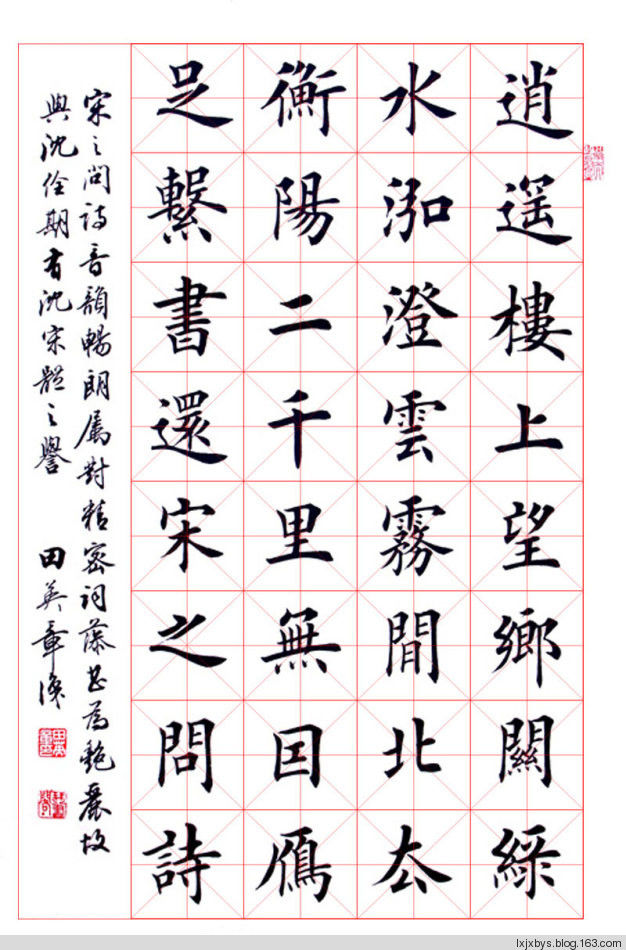 逍遥樓上望鄉關綠
水泓澄雲霧間北厺
衡陽二千里無囙鴈
足繫書還宋之問詩
宋之问詩音韻暢朗属對精密词藻甚为艷麗故
與沈佺期有沈宋體之譽 田英章
lxjxbys.blog.163.com